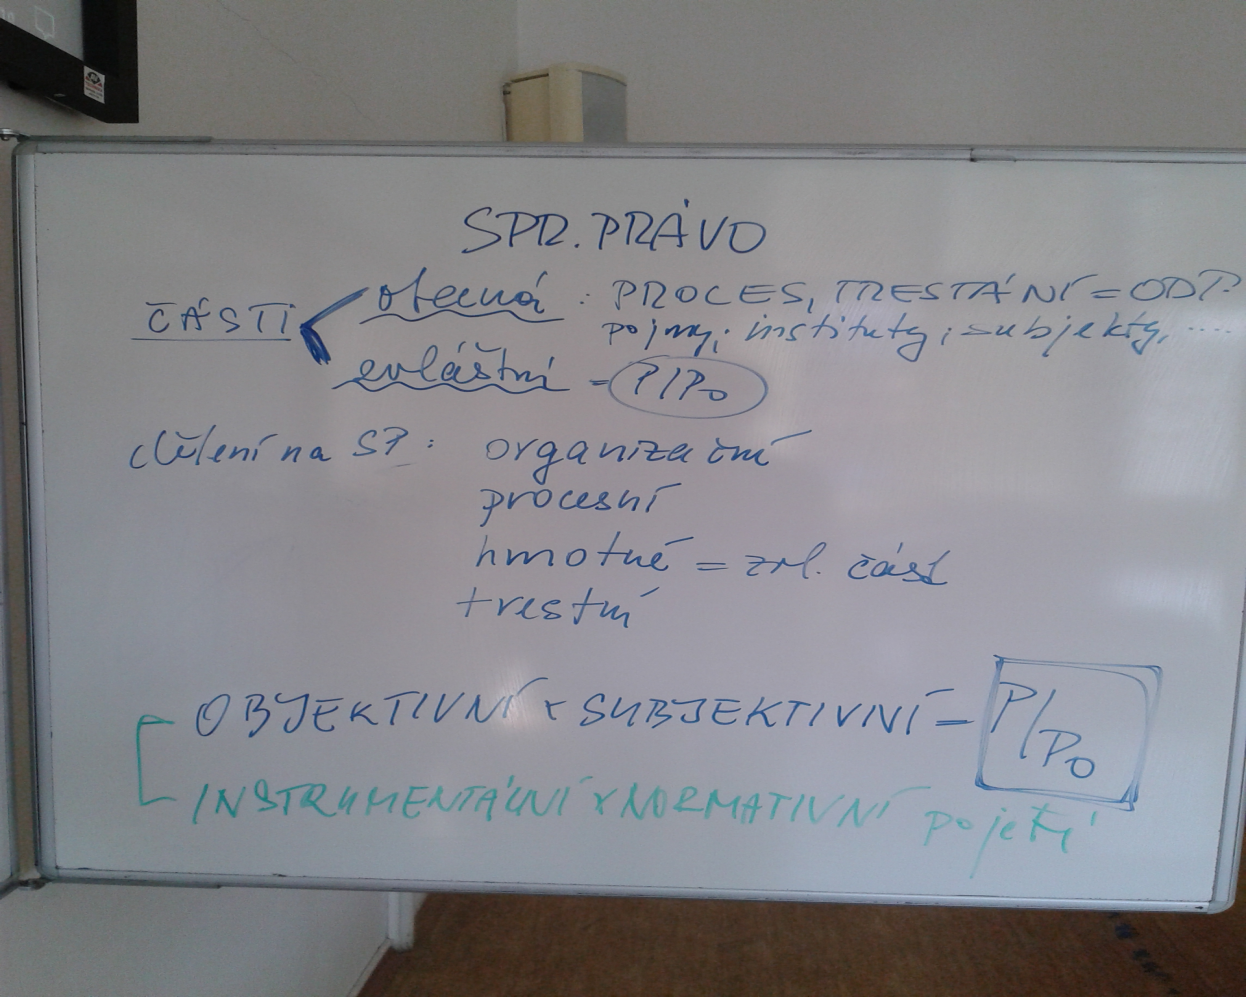 SPR. PRÁVO
ČÁSTI
obecná : PROCES, TRESTÁNÍ = ODP.
pojmy, instituty, subjekty, ....
zvláštní = P/Po
dělení na SP : organizační
procesní
hmotné = zvl. část
trestní
OBJEKTIVNÍ x SUBJEKTIVNÍ = P/Po
INSTRUMENTÁLNÍ x NORMATIVNÍ pojetí